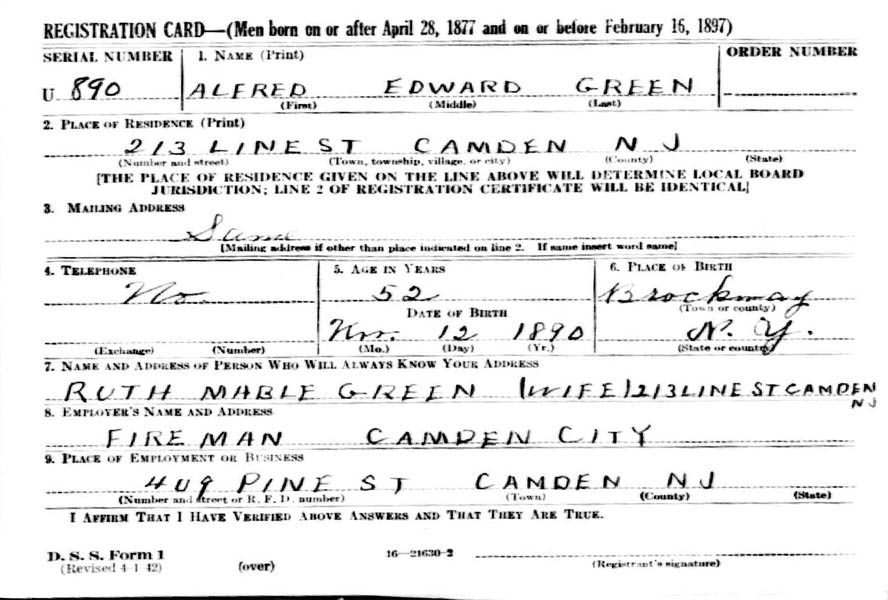 REGISTRATION CARD—(Men born on or after April 28, 1877 and on or before February 16, 1897)
SERIAL NUMBER 1. NAME (Print) ORDER NUMBER
U 890 ALFRED EDWARD GREEN
(First) (Middle) (Last)
2. PLACE OF RESIDENCE (Print)
213 LINE ST CAMDEN N J
(Number and street) (Town, township, village, or city) (County) (State)
[THE PLACE OF RESIDENCE GIVEN ON THE LINE ABOVE WILL DETERMINE LOCAL BOARD
JURISDICTION; LINE 2 OF REGISTRATION CERTIFICATE WILL BE IDENTICAL]
3. MAILING ADDRESS
Same
[Mailing address if other than place indicated on line 2. If same insert word same]
4. TELEPHONE 5. AGE IN YEARS 6. PLACE OF BIRTH
No. 52 Brockway
DATE OF BIRTH (Town or county)
Nov. 12 1890 N. Y.
(Exchange) (Number) (Mo.) (Day) (Yr.) (State or country)
7. NAME AND ADDRESS OF PERSON WHO WILL ALWAYS KNOW YOUR ADDRESS
RUTH MABLE GREEN (WIFE) 213 LINE ST CAMDEN
N J
8. EMPLOYER'S NAME AND ADDRESS
FIRE MAN CAMDEN CITY
9. PLACE OF EMPLOYMENT OR BUSINESS
409 PINE ST CAMDEN N J
(Number and street or R. F. D. number) (Town) (County) (State)
I AFFIRM THAT I HAVE VERIFIED ABOVE ANSWERS AND THAT THEY ARE TRUE.
D. S. S. Form 1
(Revised 4-1-42) (over) 16—21630-2 (Registrant's signature)